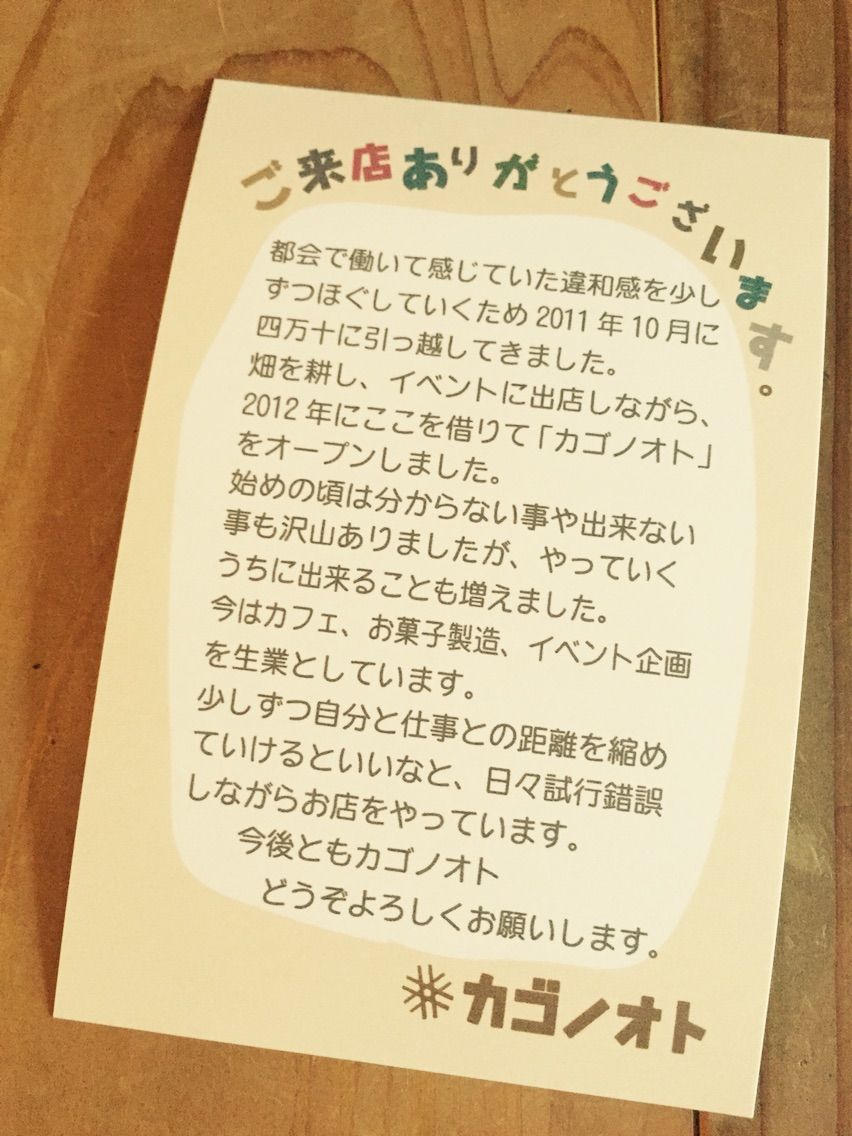 ご来店ありがとうございます。
都会で働いて感じていた違和感を少し
ずつほぐしていくため 2011 年 10 月に
四万十に引っ越してきました。
畑を耕し、イベントに出店しながら、
2012 年にここを借りて「カゴノオト」
をオープンしました。
始めの頃は分からない事や出来ない
事も沢山ありましたが、やっていく
うちに出来ることも増えました。
今はカフェ、お菓子製造、イベント企画
を生業としています。
少しずつ自分と仕事との距離を縮め
ていけるといいなと、日々試行錯誤
しながらお店をやっています。
今後ともカゴノオト
どうぞよろしくお願いします。
カゴノオト